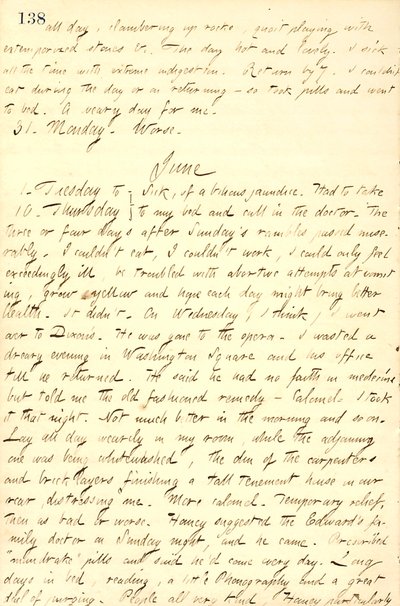 138
all day, clambering up rocks, quoit playing with
extemporized stones &c. The day hot and lovely. I sick
all the time with extreme indigestion. Return by 7. I couldn't
eat during the day or on returning - so took pills and went
to bed. A weary day for me.
31. Monday. Worse.
June
1. Tuesday to Sick, of a bilious jaundice. Had to take
10. Thursday to my bed and call in the doctor. The
three or four days after Sunday's rambles passed mise-
rably. I couldn't eat, I couldn't work, I could only feel
exceedingly ill, be troubled with abortive attempts at vomit-
ing, grow yellow and hope each day might bring better
health. It didn't. On Wednesday (I think) I went
over to Dixon's. He was gone to the opera. I wasted a
dreary evening in Washington Square and his office
till he returned. He said he had no faith in medicine
but told me the old fashioned remedy - Calomel. I took
it that night. Not much better in the morning and so on.
Lay all day wearily in my room, while the adjoining
one was being whitewashed, the din of the carpenters
and bricklayers finishing a tall tenement house in our
rear distressing me. More calomel. Temporary relief,
then as bad or worse. Haney suggested the Edwards' fa-
mily doctor on Sunday night, and he came. Prescribed
"mandrake" pills and said he'd come every day. Long
days in bed, reading, a little Phonography and a great
deal of purging. People all very kind, Haney particularly